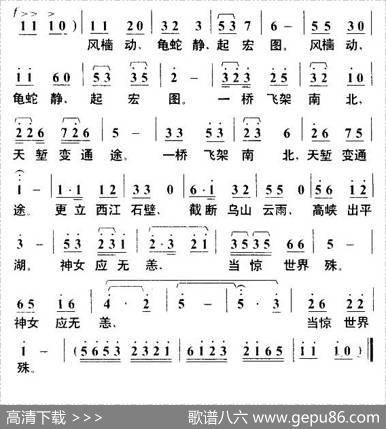 f > > >
1 1 1 0 ) | 1 1 2 0 | 3 2 3 | 5 3 5 7 | 6 - | 5 5 3 0 |
风樯 动、 龟蛇 静、 起 宏 图。 风樯 动、
1 1 6 0 | 5 3 3 5 | 2 - | 3 2 3 2 5 | 3 2 1 0 |
龟蛇 静、 起 宏 图。 一 桥 飞架 南 北、
2 2 6 7 2 6 | 5 - | 3 3 5 3 | 2 3 6 | 2 6 7 5 |
天 堑 变 通 途。 一桥 飞架 南 北、 天堑 变通
1 - | 1 · 1 1 2 | 3 3 0 | 6 · 1 3 2 | 5 5 0 | 5 6 1 2 |
途。 更立 西江 石壁、 截断 乌山 云雨、 高峡 出平
3 - | 5 3 2 3 1 | 2 · 3 2 1 | 3 5 3 5 6 6 | 5 - |
湖。 神女 应 无 恙、 当 惊 世界 殊。
6 5 1 6 | 4 · 2 | 5 - | 5 · 3 | 2 6 2 2 |
神女 应无 恙、 当惊 世界
1 - | ( 5 6 5 3 2 3 2 1 | 6 1 2 3 2 1 6 5 | 1 1 1 0 ) ‖
殊。
高清下载 >>> 歌谱八六 www.gepu86.com